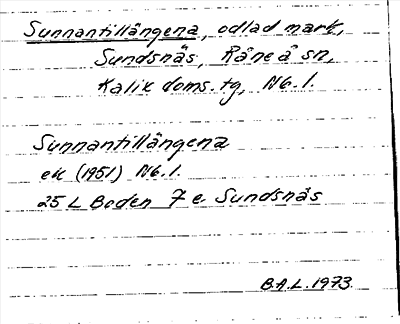 Sunnantillängena, odlad mark,
Sundsnäs, Råneå sn,
Kalix doms. tg, Nb. l.
Sunnantillängena
ek (1951) Nb. l.
25 L Boden 7 e. Sundsnäs
B.A.L. 1973.